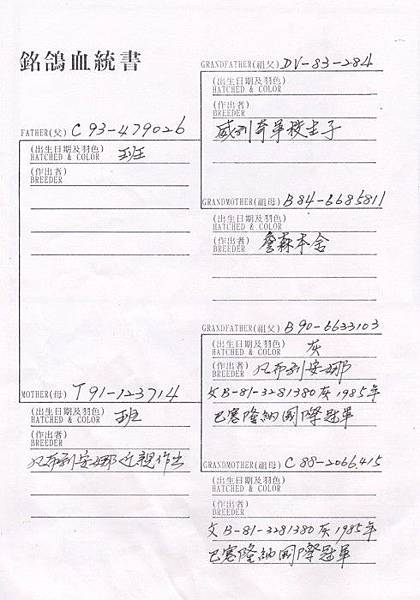 銘鴿血統書
GRANDFATHER(祖父) DV-83-284
(出生日期及羽色)
HATCHED & COLOR
(作出者)
BREEDER
威利哥單校主子
FATHER(父) C 93-479026
(出生日期及羽色) 斑
HATCHED & COLOR
(作出者)
BREEDER
GRANDMOTHER(祖母) B84-6685811
(出生日期及羽色)
HATCHED & COLOR
(作出者) 詹森本舍
BREEDER
GRANDFATHER(祖父) B90-6633103
(出生日期及羽色) 灰
HATCHED & COLOR
(作出者) 凡布利安娜
BREEDER
父B-81-3281380灰1985年
巴塞隆納國際冠軍
MOTHER(母) T91-123714
(出生日期及羽色) 斑
HATCHED & COLOR
(作出者)
BREEDER
凡布利安娜近親作出
GRANDMOTHER(祖母) C 88-2066415
(出生日期及羽色)
HATCHED & COLOR
(作出者)
BREEDER
父B-81-3281380灰1985年
巴塞隆納國際冠軍